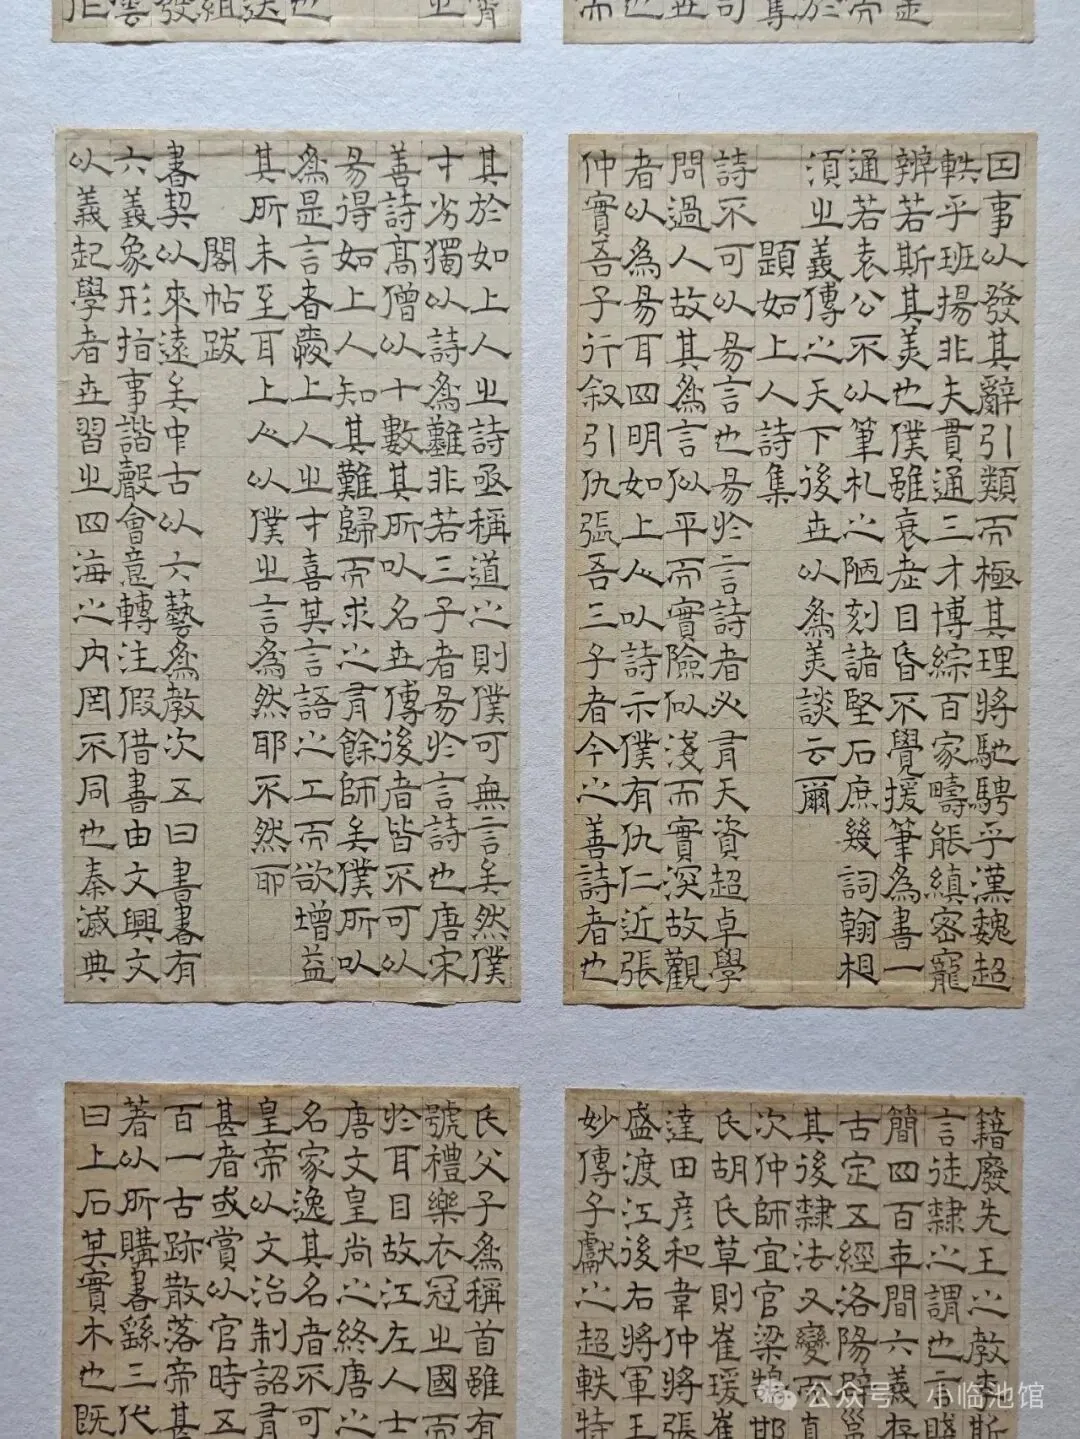 因事以發其辭引類而極其理將馳騁乎漢魏超
軼乎班揚非夫貫通三才博綜百家疇能縝密寵
辨若斯其美也僕雖衰耄目昏不覺援筆為書一
通若袁公不以筆札之陋刻諸堅石庶幾詞翰相
湏之義傳之天下後世以為美談云爾
題如上人詩集
詩不可以易言也易於言詩者必有天資超卓學
問過人故其為言似平而實險似淺而實深故觀
者以為易耳四明如上人以詩示僕有仇仁近張
仲實吾子行叙引仇張吾三子者今之善詩者也
其於如上人之詩亟稱道之則僕可無言矣然僕
才劣獨以詩為難非若三子者易於言詩也唐宋
善詩高僧以十數其所以名世傳後者皆不可以
易得如上人知其難歸而求之有餘師矣僕所以
為是言者愛上人之才喜其言語之工而欲增益
其所未至耳上人以僕之言為然耶不然耶
閣帖跋
書契以來遠矣中古以六藝為教次五曰書書有
六義象形指事諧聲會意轉注假借書由文興文
以義起學者世習之四海之內罔不同也秦滅典
籍廢先王之教李斯
言徒隸之謂也言賤
簡四百年間六義存
古定五經洛陽
其後隸法又變而真
次仲師宜官梁鵠邯
氏胡氏草則崔瑗崔
達田彥和韋仲將張
盛渡江後右將軍王
妙傳子獻之超軼特
氏父子為稱首雖有
號禮樂衣冠之國而
於耳目故江左人士
唐文皇尚之終唐之
名家逸其名者不可
皇帝以文治制詔有
甚者或賞以官時五
百一古跡散落帝甚
著以所購書繇三代
曰上石其實木也既
公众号·小临池馆